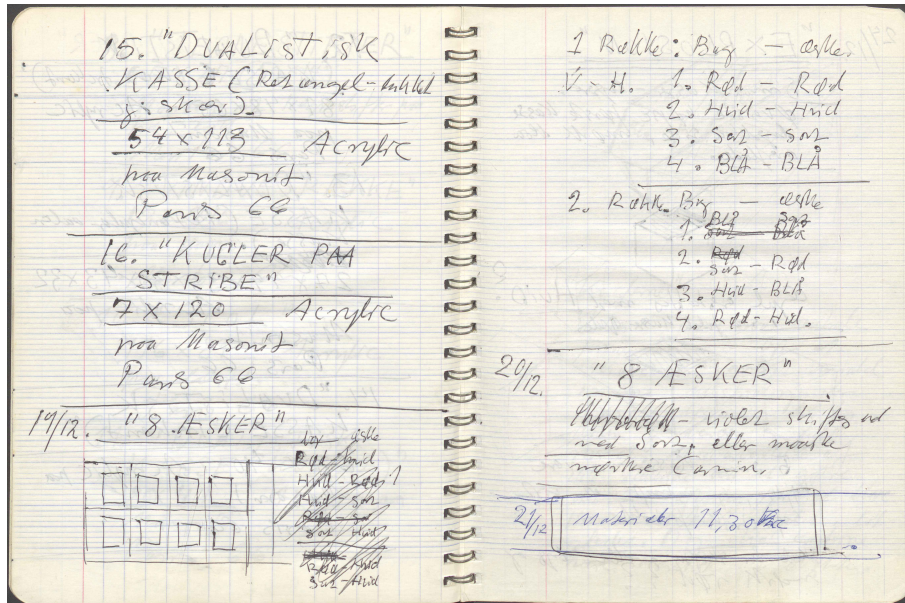 15. "DUALISTISK
KASSE (Retangel-
54 x 113 Acrylic
paa Masonit
Paris 66
16. "KUGLER PAA
STRIBE"
7 x 120 Acrylic
paa Masonit
Paris 66
19/12. "8 ÆSKER"
æske
Rød - Hvid
Hvid - Rød
Hvid - Sort
Sort Hvid
Sort - Hvid
1 Række: Bag - æske.
V - H. 1. Rød - Rød
2. Hvid - Hvid
3. Sort - Sort
4. BLÅ - BLÅ
2. Række. Bag - æske
BLÅ Sort
1. Sort - Blåå
2. Rød
Sort - Rød
3. Hvid - BLÅ
4. Rød - Hvid.
20/12. "8 ÆSKER"
- violet skiftes ud
med Sort, eller maaske
mørkere Carmin.
21/12 Materialer 11,30